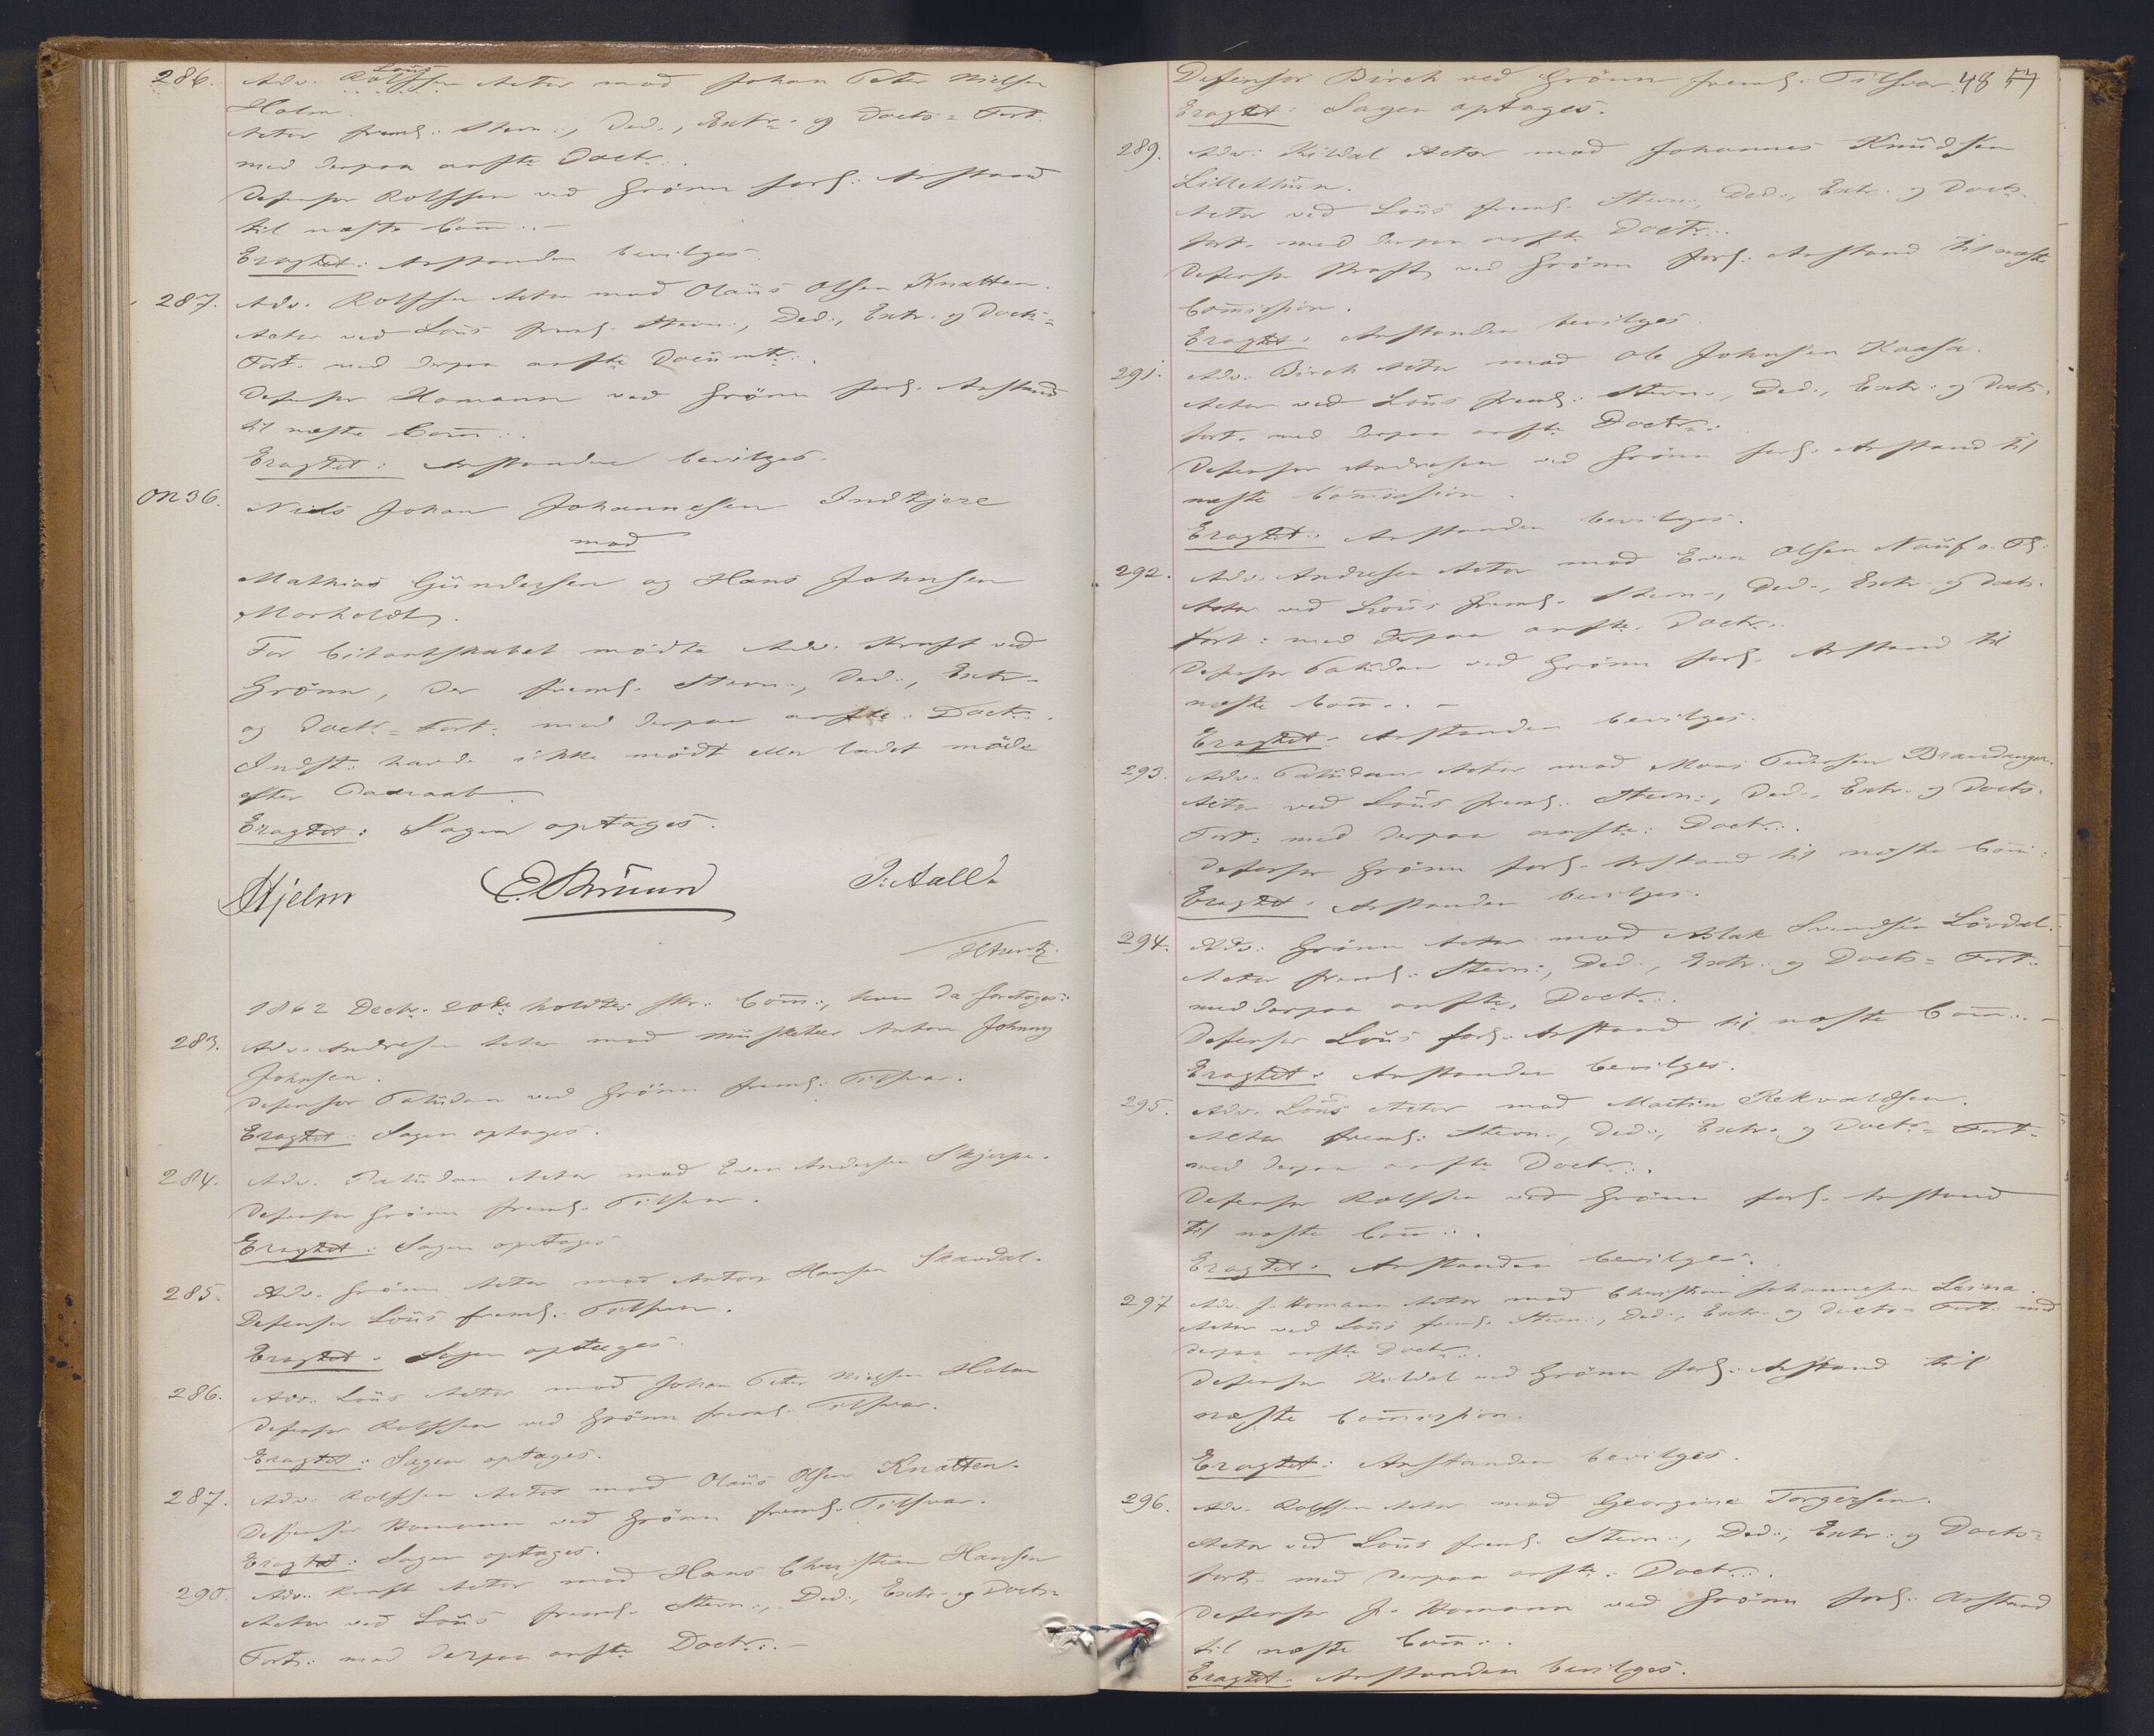 286. Adv. Rolfsen Loüs Actor mod Johan Peter Nielsen
Holm.
Actor freml: Stevn:, Ded:, Extr: og Docts= Fort.
med derpaa anfte Doctr:.
Defensor Rolfsen ved Grönn forl: Anstand
til næste Com̄:. –
Eragtet: Anstanden bevilges.
287. Adv. Rolfsen Actor mod Olaüs Olsen Knatten.
Actor ved Loüs freml. Stevn:, Ded:, Extr. og Docts=
Fort. med derpaa anfte Documtr:.
Defensor Homann ved Grönn forl. Anstand
til næste Com̄:.
Eragtet: Anstanden bevilges.
On 36. Niels Johan Johannesen Indtjere
mod
Mathias Gündersen og Hans Johnsen
Morholdt.
For Citantskabet mödte Adv. Kraft ved
Grönn, der freml. Stevn:, Ded:, Extr=
og Docts= Fort: med derpaa anfte: Doctr:.
Indst: havde ikke mödt eller ladet möde
efter Paaraab.
Eragtet: Sagen optages.
Hjelm E. Bruun J: Aall
1862 Decbr. 20de holdtes skr: Com̄:, hvor da foretoges:
283. Adv. Andresen Actor mod Müsketeer Anton Johnny
Johnsen.
Defensor Palüdan ved Grönn freml: Tilsvar.
Eragtet: Sagen optages.
284. Adv. Palüdan Actor mod Even Andersen Skjerpe.
Defensor Grönn freml. Tilsvar.
Eragtet: Sagen optages
285. Adv. Grönn Actor mod Anton Hansen Skavdal.
Defensor Loüs freml: Tilsvar.
Eragtet: Sagen optages.
286. Adv: Loüs Actor mod Johan Peter Nielsen Holm
Defensor Rolfsen ved Grönn freml. Tilsvar.
Eragtet: Sagen optages.
287. Adv: Rolfsen Actor mod Olaüs Olsen Knatten.
Defensor Homann ved Grönn freml. Tilsvar.
Eragtet: Sagen optages.
290. Adv: Kraft Actor mod Hans Christian Hansen
Actor ved Loüs freml. Stevn:, Ded:, Extr. og Docts=
Fort: med derpaa anfte Doctr:. –
Defensor Birch ved Grönn freml: Tilsvar. 48 57
Eragtet: Sagen optages.
289. Adv: Kildal Actor mod Johannes Knüdsen
Lillethün.
Actor ved Loüs freml. Stevn:, Ded:, Extr. og Docts.
fort. med derpaa anfte Doctr:.
Defensor Kraft ved Grönn forl: Anstand til næste
Com̄ission.
Eragtet: Anstanden bevilges.
291. Adv. Birch Actor mod Ole Johnsen Kaasa.
Actor ved Loüs freml: Stevn:, Ded:, Extr: og Docts.
fort. med derpaa anfte Doctr:.
Defensor Andresen ved Grönn forl. Anstand til
næste Com̄ission.
Eragtet: Anstanden bevilges.
292. Adv. Andresen Actor mod Even Olsen Naüf o. Fl:
Actor ved Loüs freml. Stevn:, Ded:, Extr. og Docts.
Fort: med derpaa anfte. Doctr:.
Defensor Palüdan ved Grönn forl. Anstand til
næste Com̄:. –
Eragtet: Anstanden bevilges.
293. Adv. Palüdan Actor mod Mons Pedersen Brandanger.
Actor ved Loüs freml: Stevn:, Ded:, Extr. og Docts.
Fort: med derpaa anfte: Doctr:.
Defensor Grönn forl. Anstand til næste Com̄:
Eragtet: Anstanden bevilges.
294. Adv: Grönn Actor mod Aslak Svendsen Lövdal:
Actor freml: Stevn:, Ded:, Extr: og Docts= Fort:
med derpaa anfte. Doctr:.
Defensor Loüs forl. Anstand til næste Com̄:. –
Eragtet: Anstanden bevilges.
295. Adv. Loüs Actor mod Martin Rekvaldsen.
Actor freml: Stevn:, Ded:, Extr. og Docts= Fort.
med derpaa anfte Doctr:.
Defensor Rolfsen ved Grönn forl. Anstand
til næste Com̄:.
Eragtet: Anstanden bevilges.
297 Adv. J. Homann Actor mod Christian Johannesen Leina.
Actor ved Loüs freml. Stevn:, Ded:, Extr. og Docts= Fort. med
derpaa anfte Doctr:.
Defensor Kildal ved Grönn forl. Anstand til
næste Com̄ission.
Eragtet: Anstanden bevilges.
296. Adv. Rolfsen Actor mod Georgine Torgersen.
Actor ved Loüs freml. Stevn:, Ded:, Extr: og Docts=
fort. med derpaa anfte: Doctr:.
Defensor J. Homann ved Grönn forl: Anstand
til næste Com̄:.
Eragtet: Anstanden bevilges.